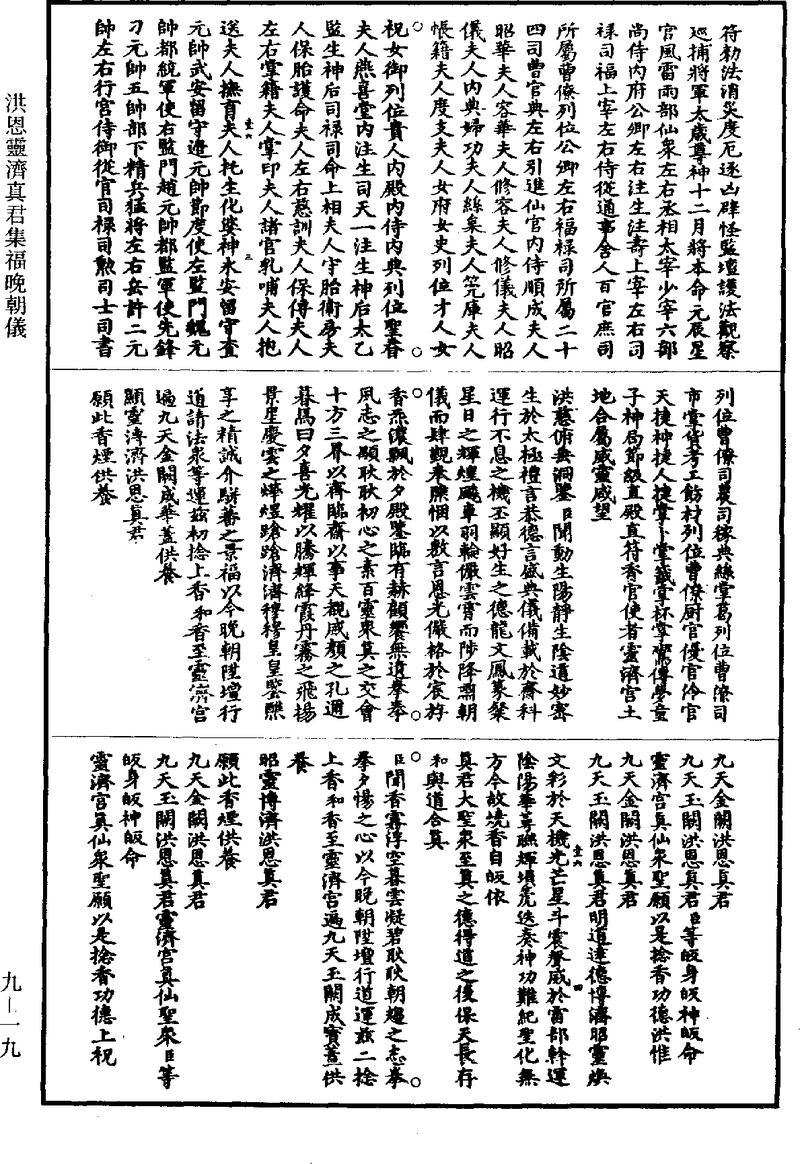 洪恩靈濟真君集福晚朝儀
九—一九
符勑法消災度厄逐凶辟怪監壇護法觀察
巡捕將軍太歲尊神十二月將本命元辰星
官風雷雨部仙眾左右丞相太宰少宰六部
尚侍內府公卿左右注生注壽上宰左右司
祿司福上宰左右侍從通事舍人百官庶司
所屬曹僚列位公卿左右福祿司所屬二十
四司曹官典左右引進仙官內侍順成夫人
昭華夫人容華夫人修容夫人修儀夫人昭
儀夫人內典婦功夫人絲枲夫人筦庫夫人
帳籍夫人度支夫人女府女史列位才人女
祝女御列位貴人內殿內侍內典列位聖眷
夫人燕喜堂內注生司天一注生神后太乙
監生神后司祿司命上相夫人守胎衛房夫
人保胎護命夫人左右慈訓夫人保傅夫人
左右掌籍夫人掌印夫人諸官乳哺夫人抱
送夫人撫育夫人托生化婆神永安留守查
元帥武安留守邊元帥節度使左監門魏元
帥都統軍使右監門趙元帥都監軍使先鋒
刁元帥五帥部下精兵猛將左右岳許二元
帥左右行宮侍御從官司祿司勳司士司書
列位曹僚司農司稼典絲掌葛列位曹僚司
市掌貨考工飭材列位曹僚厨官優官伶官
天捷神捷人捷掌卜掌籤掌杯掌鸞傳夢童
子神局節級直殿直符香官使者靈濟宮土
地合屬威靈咸望
洪慈俯垂洞鑒臣聞動生陽靜生陰道妙寄
生於太極禮言恭德言盛典儀備載於齋科
運行不息之機丕顯好生之德龍文鳳篆粲
星日之輝煌飈車羽輪儼雲霄而陟降肅朝
儀而肆觀奉悃以敷言恩光儼格於宸斿
香炁濃飄於夕殿鑒臨有赫顧饗無遺拳拳
夙志之顯耿耿初心之素百靈來莫之交會
十方三界以齊臨齋以事天覩威顏之孔邇
暮為曰夕喜光耀以騰輝絳霞丹霧之飛揚
景星慶雲之燁熤蹌蹌濟濟穆穆皇皇鑒熙
享之精誠介駢蕃之景福以今晚朝陞壇行
道請法眾等運茲初捻上香和香至靈濟宮
遍九天金闕成華蓋供養
顯靈溥濟洪恩真君
願此香煙供養
九天金闕洪恩真君
九天玉闕洪恩真君臣等皈身皈神皈命
靈濟宮真仙眾聖願以是捻香功德洪惟
九天金闕洪恩真君
九天玉闕洪恩真君明道達德博濟昭靈煥
文彩於天機光芒星斗震聲威於雷部幹運
陰陽華萼聯輝壎箎迭奏神功難紀聖化無
方今故燒香自皈依
真君大聖眾至真之德得道之後保天長存
和與道合真
臣聞香霧浮空暮雲凝碧耿耿朝趨之志拳
拳夕惕之心以今晚朝陞壇行道運茲二捻
上香和香至靈濟宮遍九天玉闕成寶蓋供
養
昭靈博濟洪恩真君
願此香煙供養
九天金闕洪恩真君
九天玉闕洪恩真君靈濟宮真仙聖眾臣等
皈身皈神皈命
靈濟宮真仙眾聖願以是捻香功德上祝